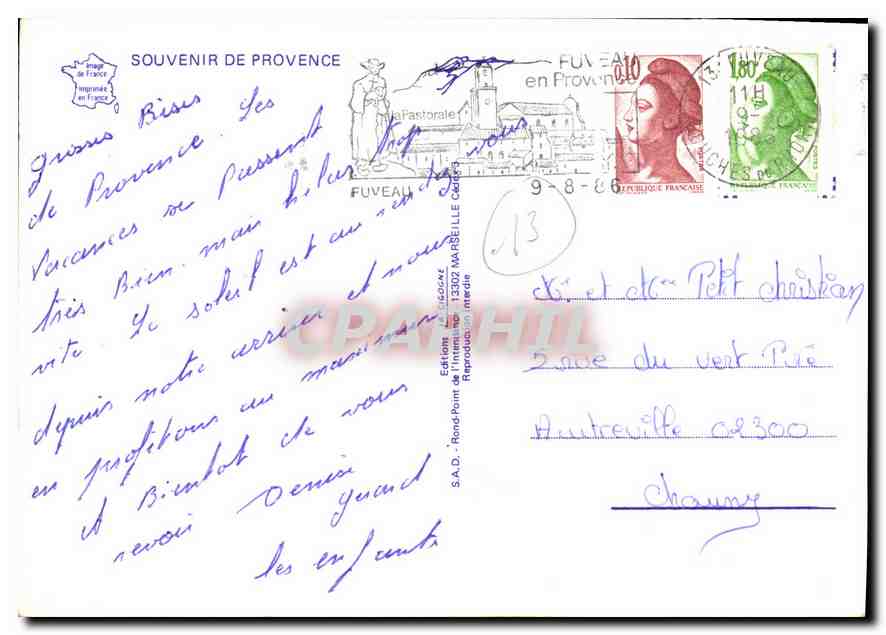 Image
de France
Imprimée
en France
SOUVENIR DE PROVENCE
La Pastorale
FUVEAU
FUVEAU
en Provence
9-8-86
0,10
REPUBLIQUE FRANÇAISE
1,80
REPUBLIQUE FRANÇAISE
13 FUVEAU
11H
9-8
BOUCHES DU RHONE
13
Grosses Bises
de Provence. Les
Vacances se Passent
très Bien mais hélas trop
vite. Le soleil est au rendez vous
depuis notre arrivée et nous
en profitons au maximum
A Bientot de vous
revoir Denise
Gerard
les enfants
Editions LA CIGOGNE
S.A.D. - Rond-Point de l'Intendance, 13302 MARSEILLE Cédex 3
Reproduction interdite
CPARHIL
Mr et Mme Petit Christian
2 rue du vert Pré
Autreville 02300
Chauny